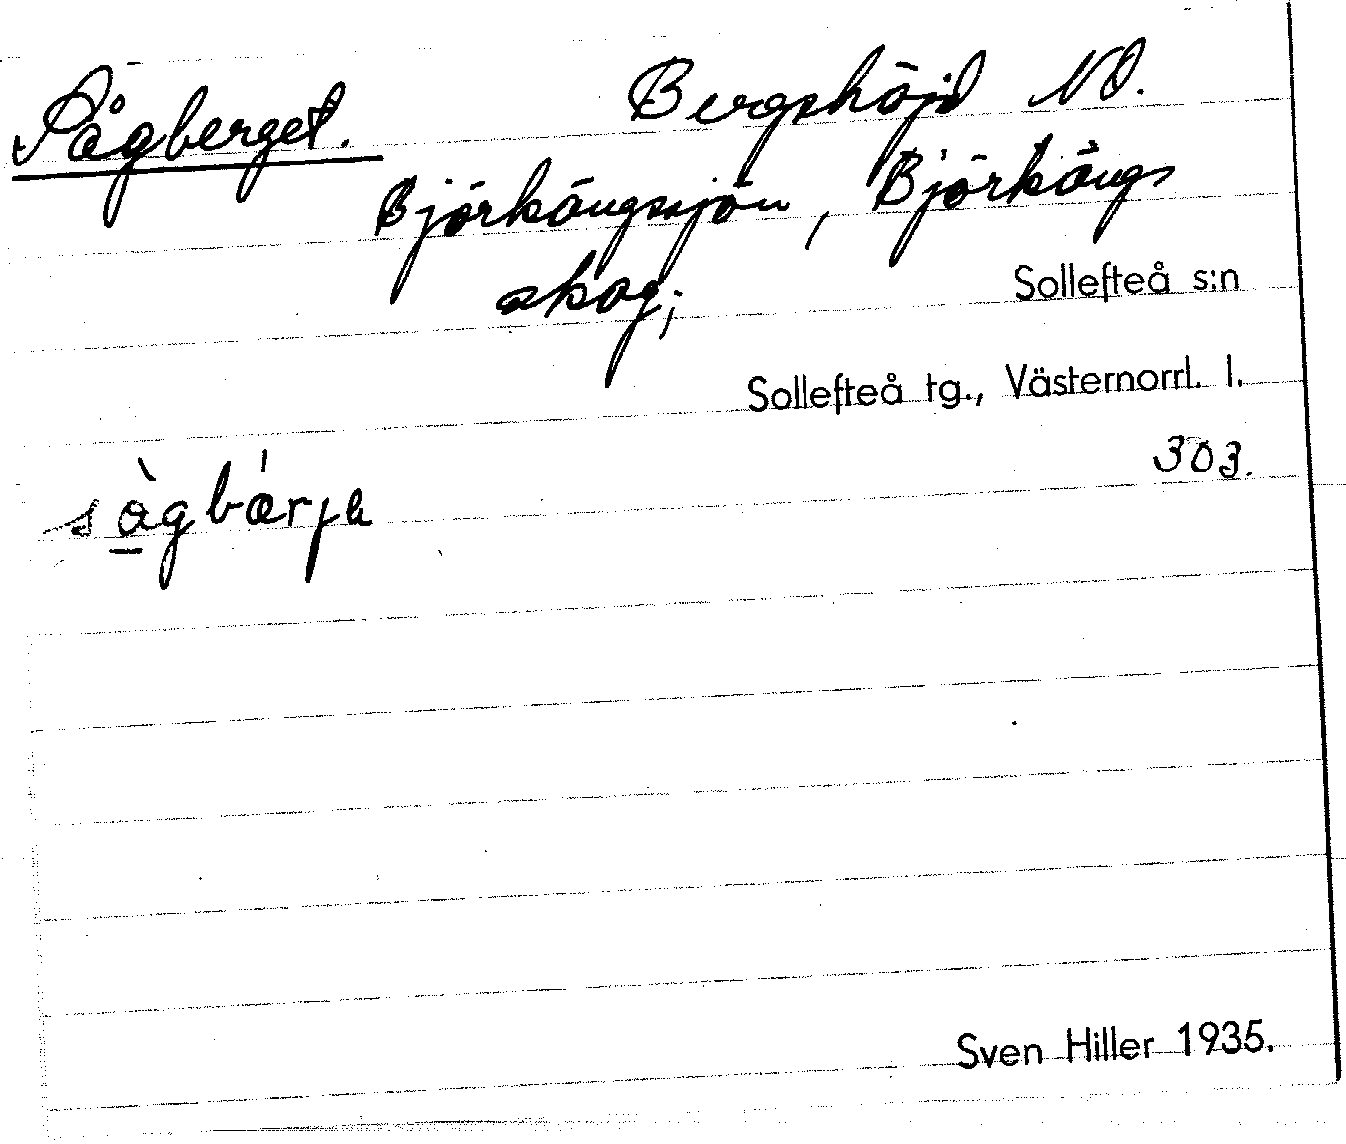 Sågberget. Bergshöjd NO.
Björkängssjön, Björkängs
skog;
Sollefteå s:n
Sollefteå tg., Västernorrl. l.
303.
sàgbǽrjɐ
Sven Hiller 1935.